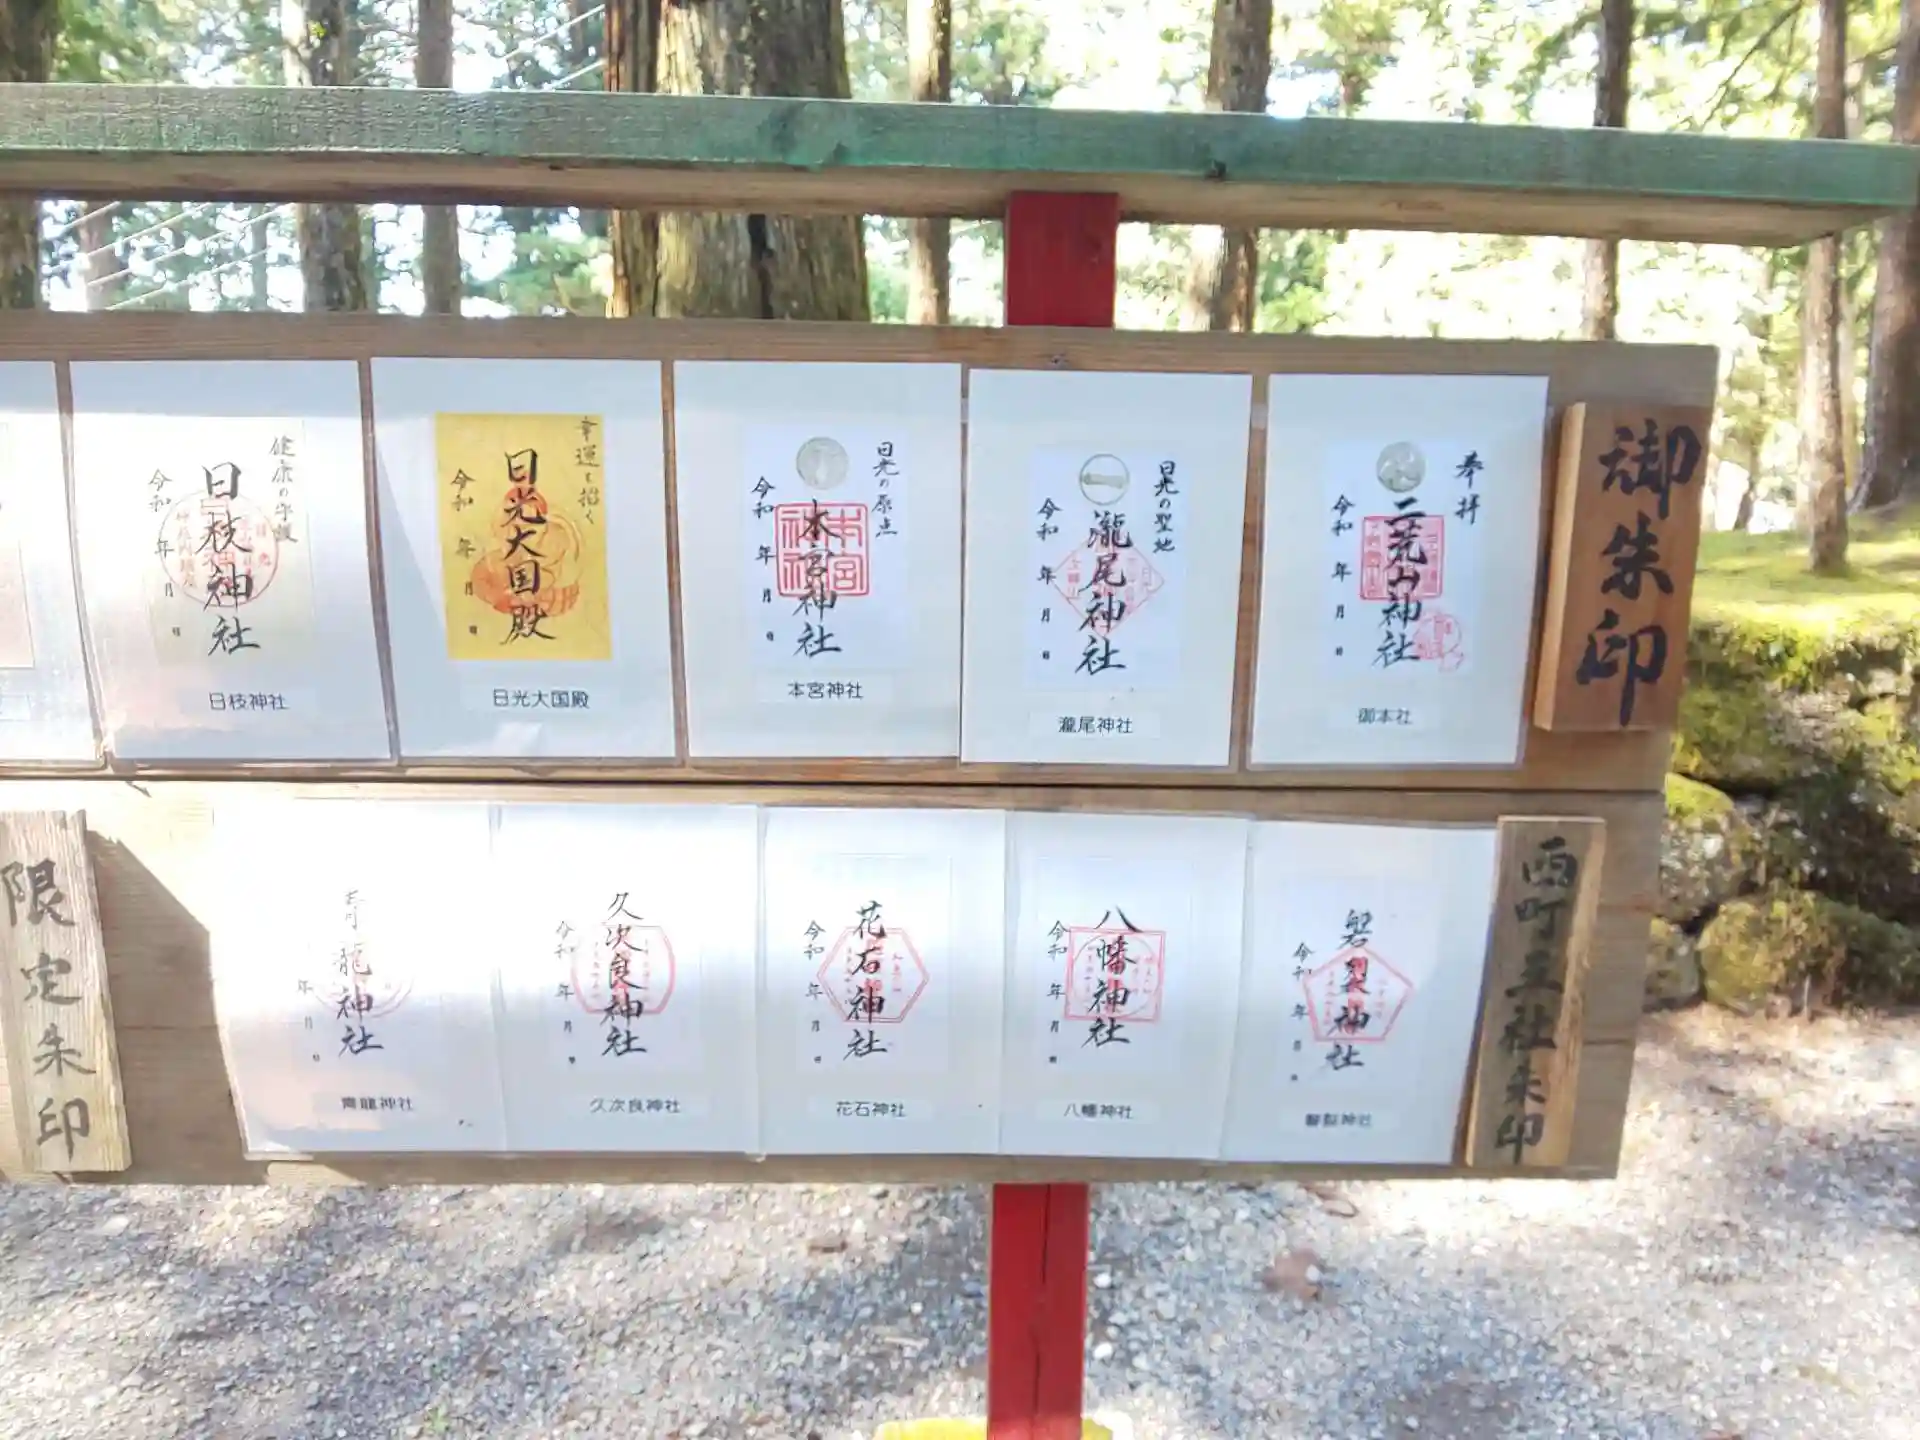 御朱印
奉拝
二荒山神社
令和 年 月 日
御本社
日光の聖地
瀧尾神社
令和 年 月 日
瀧尾神社
日光の原点
本宮神社
本宮神社
令和 年 月 日
本宮神社
幸運を招く
日光大国殿
令和 年 月 日
日光大国殿
健康の守護
日枝神社
令和 年 月 日
日枝神社
西町五社朱印
磐裂神社
令和 年 月 日
磐裂神社
八幡神社
令和 年 月 日
八幡神社
花石神社
令和 年 月 日
花石神社
久次良神社
令和 年 月 日
久次良神社
青龍神社
年 月 日
青龍神社
限定朱印